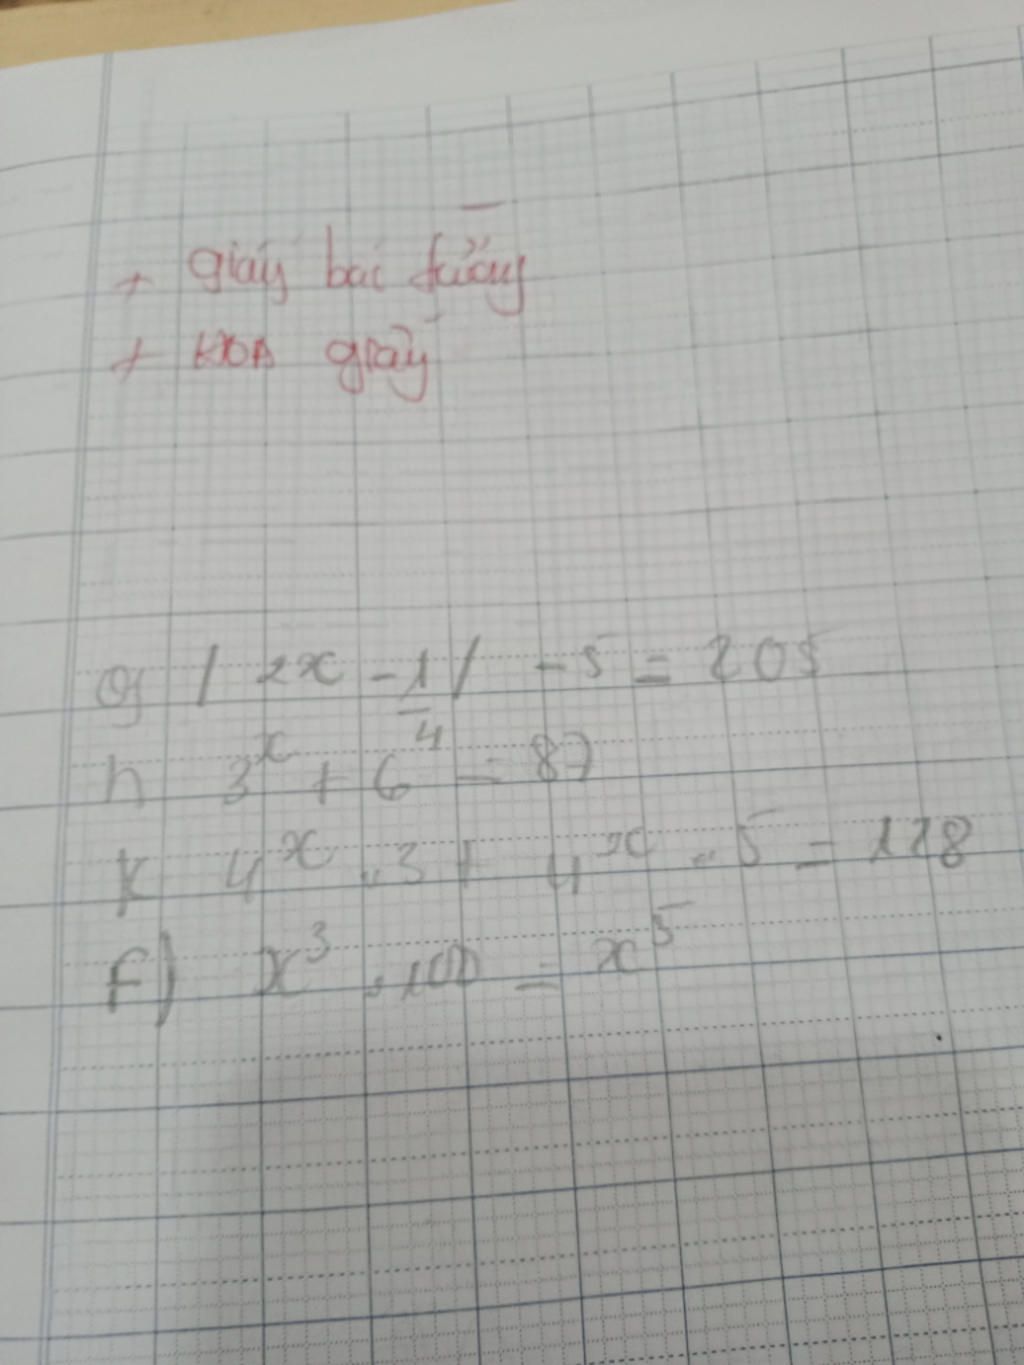 + giấy bai
+ giấy
g) | 2x - 1/4 | - 5 = 205
h 3^x + 6^4 = 87
k 4^x . 3 + 4^x . 5 = 128
f) x^3 . 100 = x^5